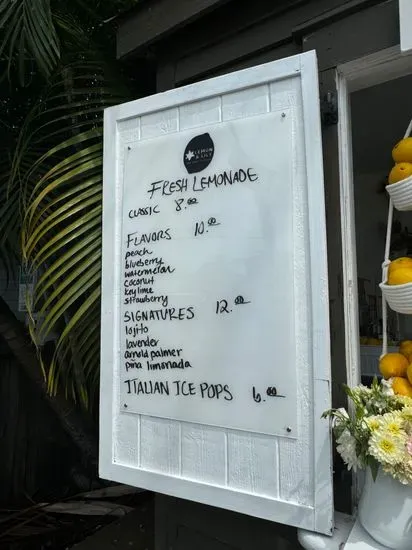 LEMON
& LILY
FRESH LEMONADE
CLASSIC 8.00
FLAVORS 10.00
peach
blueberry
watermelon
coconut
key lime
strawberry
SIGNATURES 12.00
lojito
lavender
arnold palmer
piña limonada
ITALIAN ICE POPS 6.00